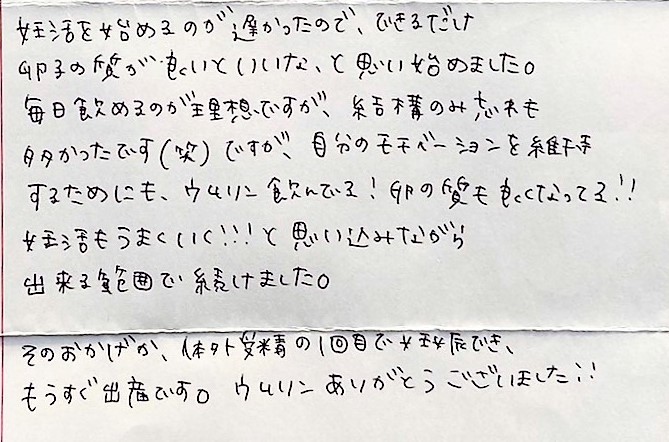 妊活を始めるのが遅かったので、できるだけ
卵子の質が良いといいな、と思い始めました。
毎日飲めるのが理想ですが、結構のみ忘れも
多かったです(笑)ですが、自分のモチベーションを維持
するためにも、ウムリン飲んでる!卵の質も良くなってる!!
妊活もうまくいく!!!と思い込みながら
出来る範囲で続けました。
そのおかげか、体外受精の1回目で妊娠でき、
もうすぐ出産です。ウムリンありがとうございました!!